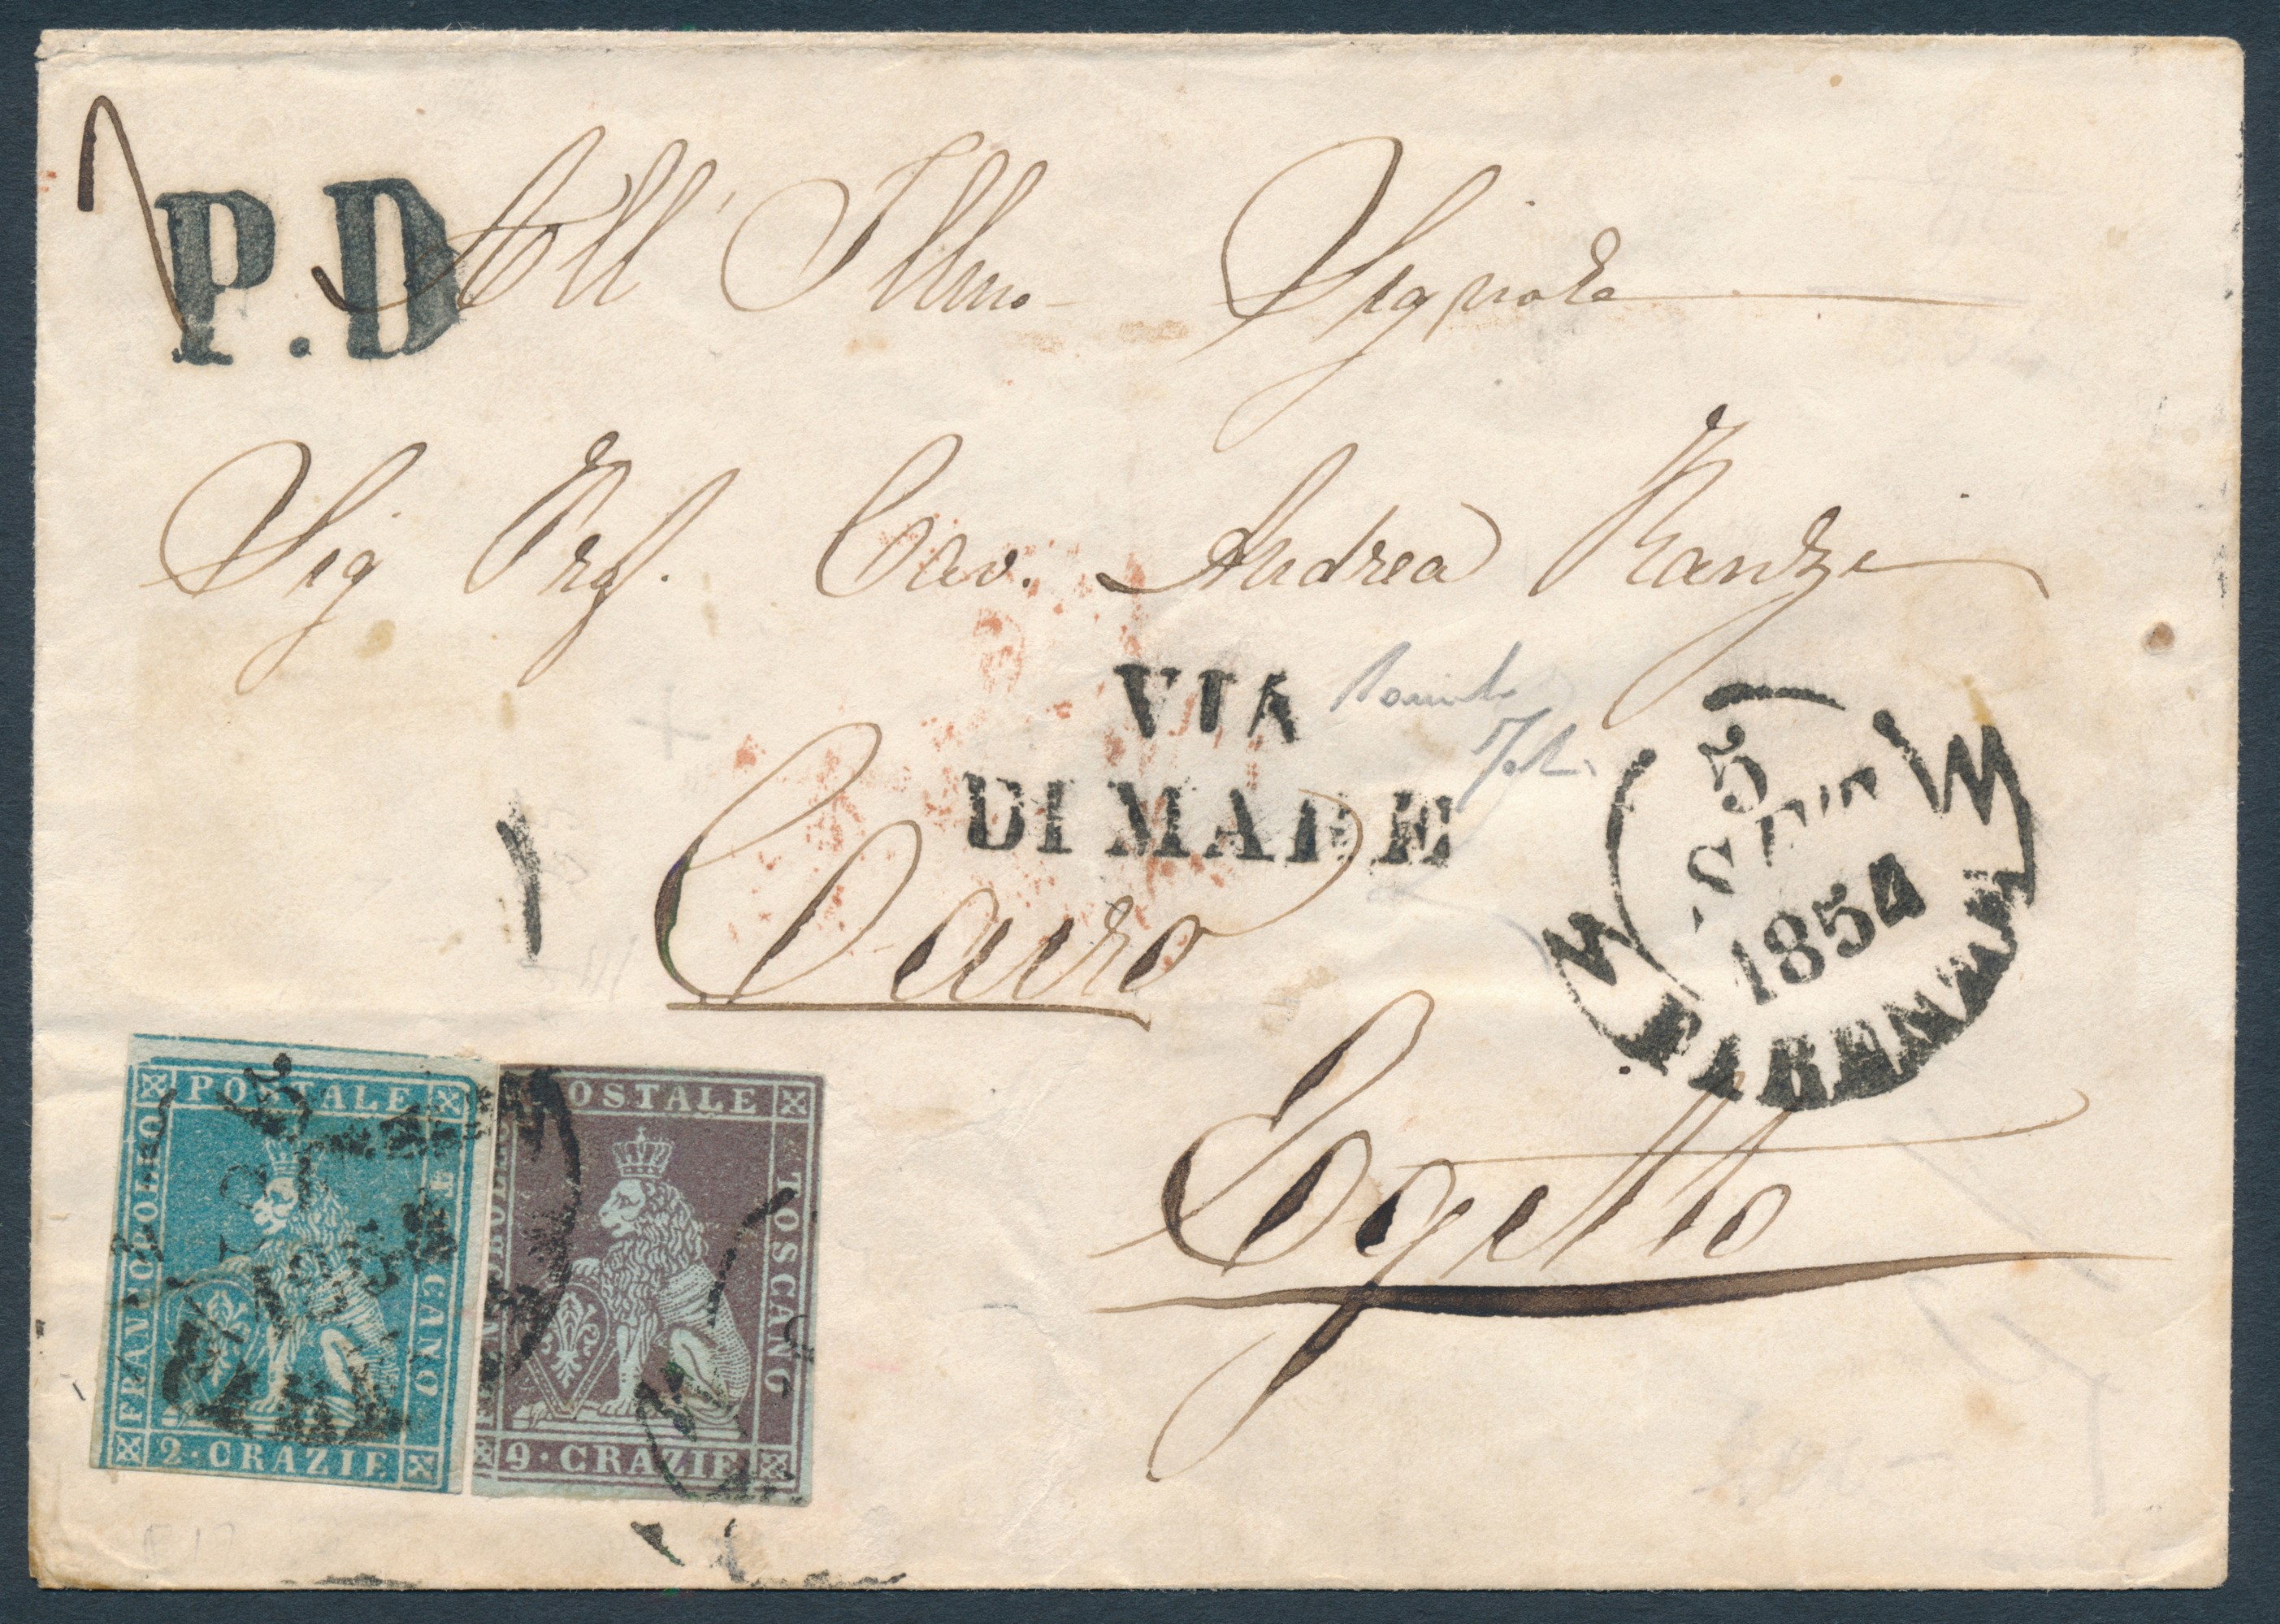 P.D
All' Illmo Signore
Sig Prof. Cav. Andrea Ranzi
VIA
DI MARE
Cairo
Egitto
5
SETT
1854
FIRENZE
POSTALE
FRANCOBOLLO
TOSCANO
2·CRAZIE
5
1854
POSTALE
FRANCOBOLLO
TOSCANO
9·CRAZIE